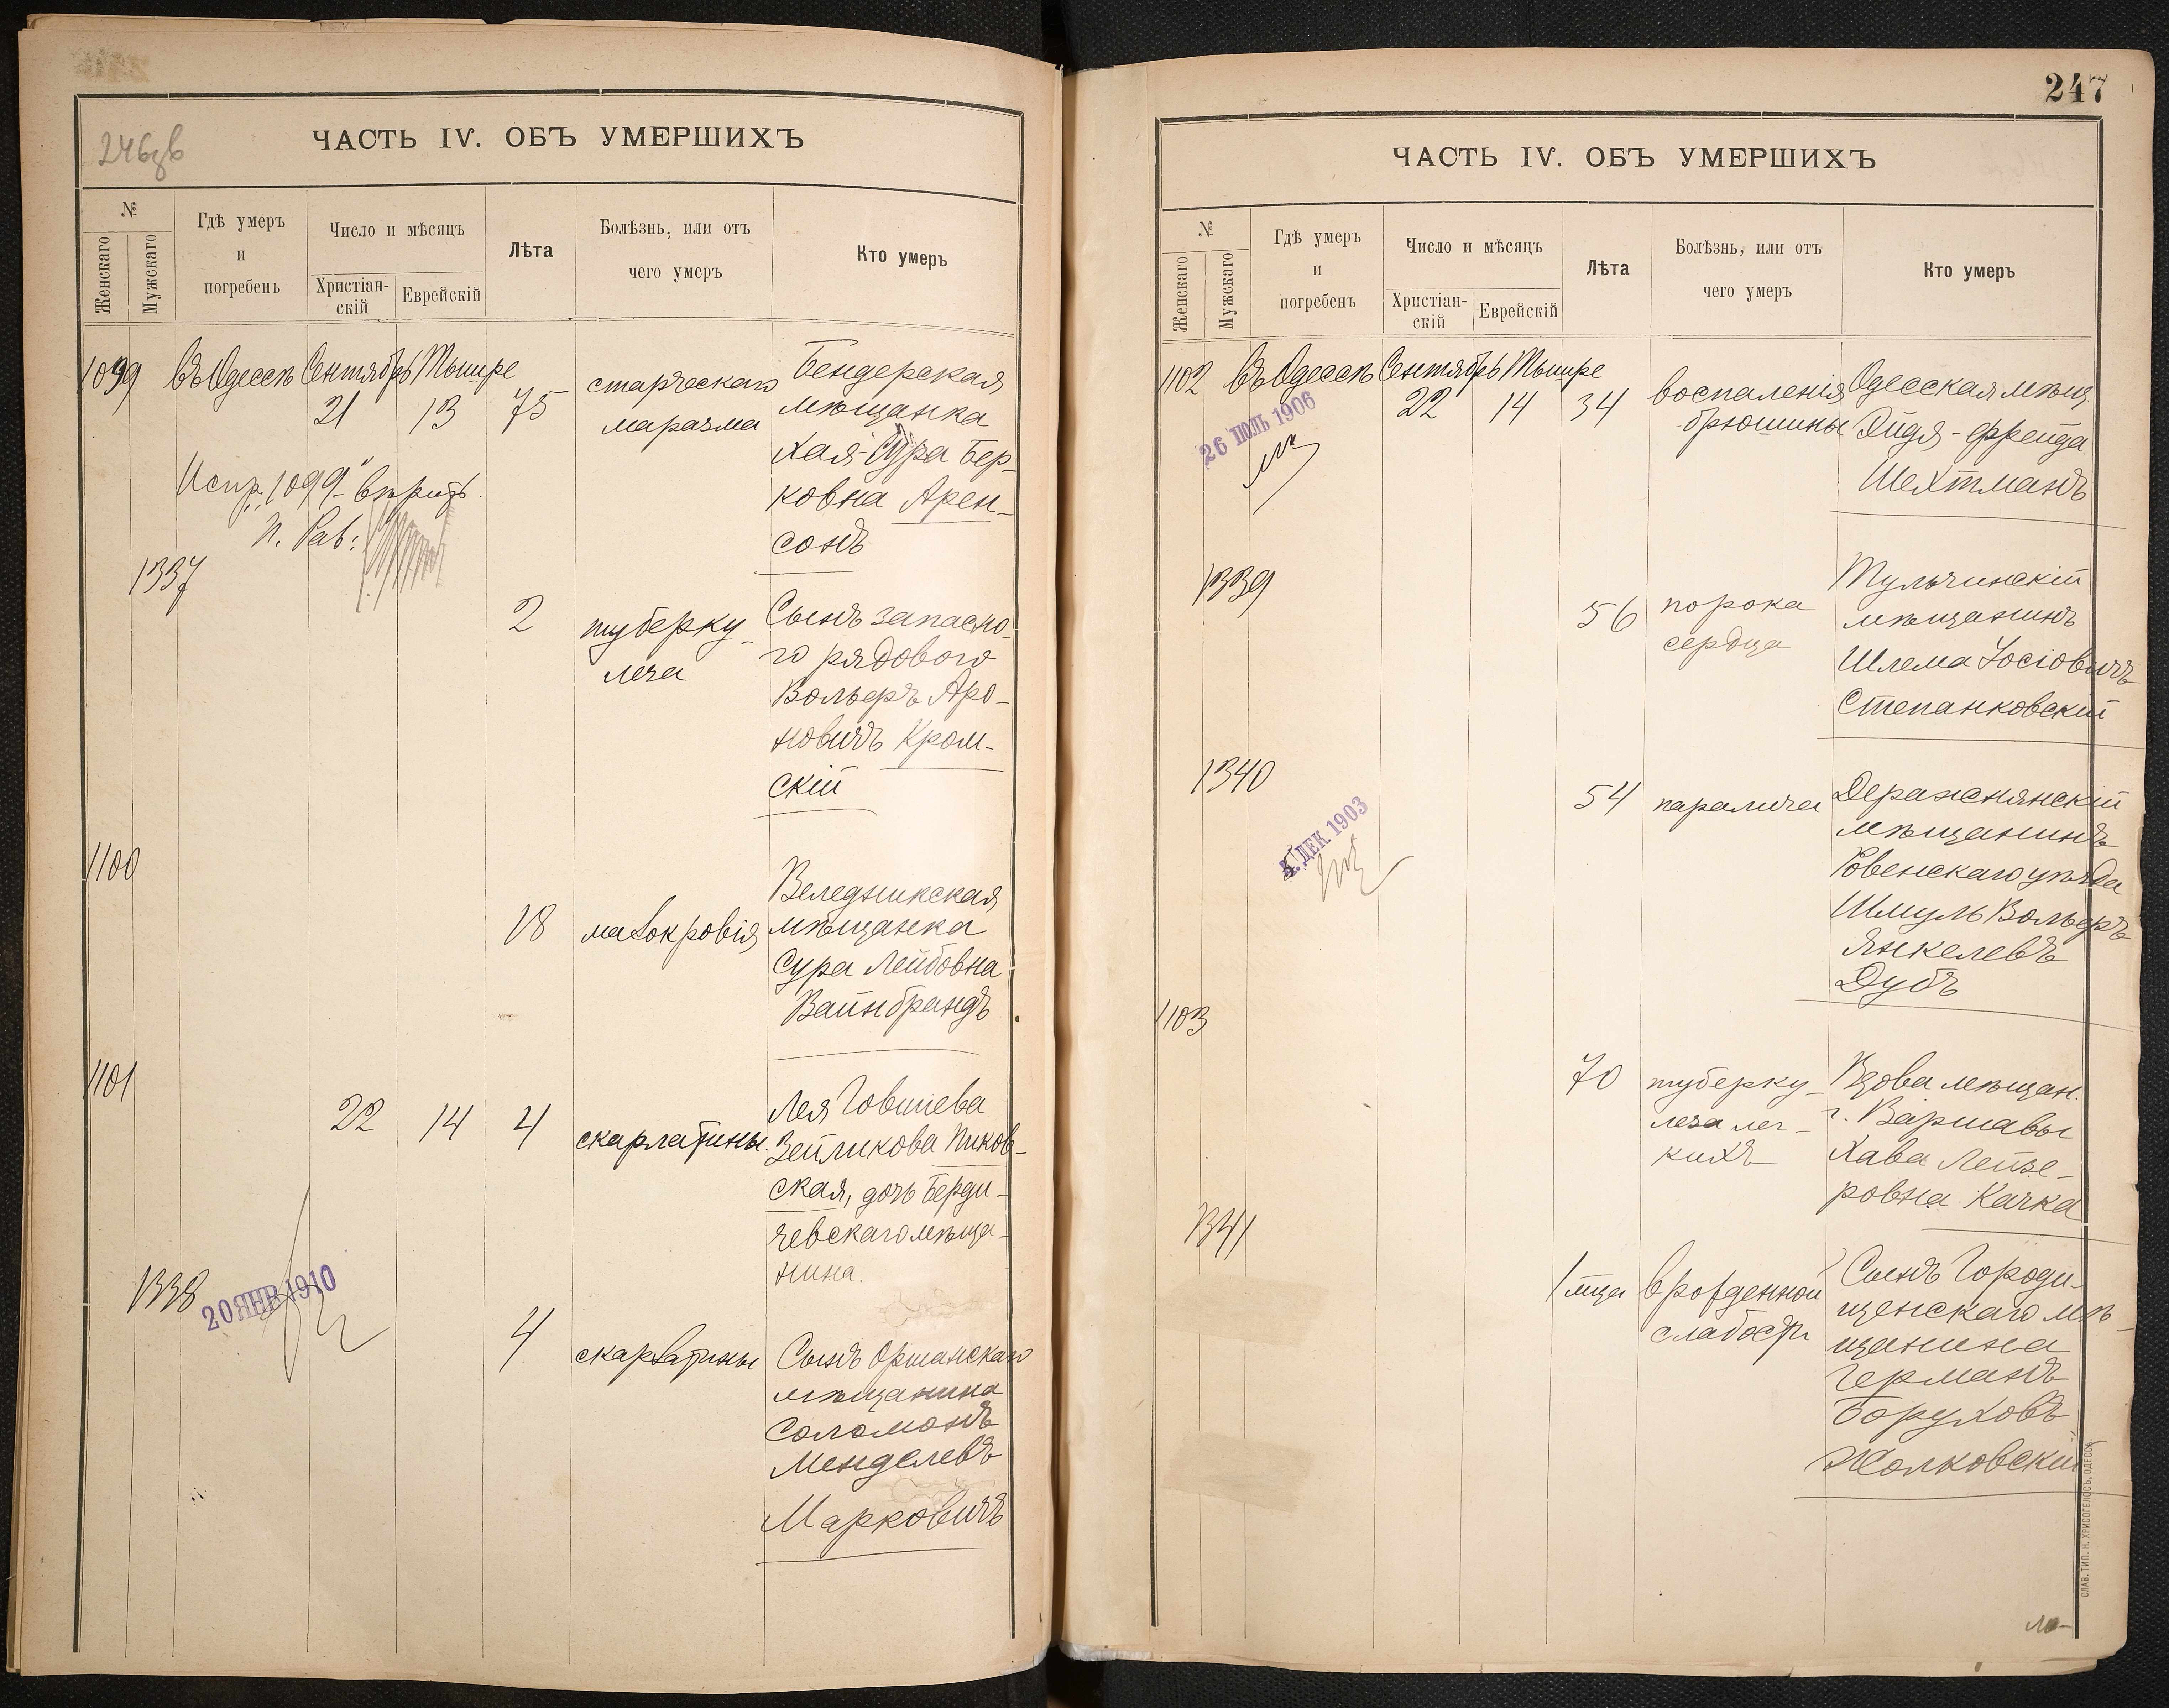 246зв
ЧАСТЬ IV. ОБЪ УМЕРШИХЪ
№
Женскаго
Мужскаго
Гдѣ умеръ
и
погребенъ
Число и мѣсяцъ
Христіан-
скій
Еврейскій
Лѣта
Болѣзнь, или отъ
чего умеръ
Кто умеръ
1099
въ Одессѣ
Сентябрь
21
Тышре
13
75
старческаго
маразма
Бендерская
мѣщанка
Хая-Сура Бер-
ковна Арен-
сонъ
Испр. "1099" вѣрить.
И. Рав:
1337
2
туберку-
леза
Сынъ запасно-
го рядового
Вольфъ Аро-
новичъ Кром-
скій
1100
18
малокровія
Веледникская
мѣщанка
Сура Лейбовна
Вайнбрандъ
1101
22
14
4
скарлатины
Лея Говшіева
Зейликова Пиков-
ская, дочь Берди-
чевскаго мѣща-
нина.
1338
20 ЯНВ 1910
4
скарлатины
Сынъ Оршанскаго
мѣщанина
Соломонъ
Менделевъ
Марковичъ
247
ЧАСТЬ IV. ОБЪ УМЕРШИХЪ
№
Женскаго
Мужскаго
Гдѣ умеръ
и
погребенъ
Число и мѣсяцъ
Христіан-
скій
Еврейскій
Лѣта
Болѣзнь, или отъ
чего умеръ
Кто умеръ
1102
въ Одессѣ
Сентябрь
22
Тышре
14
34
воспаленія
брюшины
Одесская мѣщ.
Эйдя-Фрейда
Шехтманъ
26 ІЮЛЬ 1906
1339
56
порока
сердца
Тульчинскій
мѣщанинъ
Шлема Іосіовичъ
Степанковскій
1340
ДЕК 1903
54
паралича
Деражнянскій
мѣщанинъ
Ровенскаго уѣзда
Шмуль Вольфъ
Янкелевъ
Дубъ
1103
70
туберку-
леза лег-
кихъ
Вдова мѣщан.
г. Варшавы
Хава Лейзе-
ровна Качка
1341
1 мца
врожденной
слабости
Сынъ Городи-
щенскаго мѣ-
щанина
Германъ
Боруховъ
Жолковскій
СЛАВ. ТИП. Н. ХРИСОГЕЛОСЪ, ОДЕССА